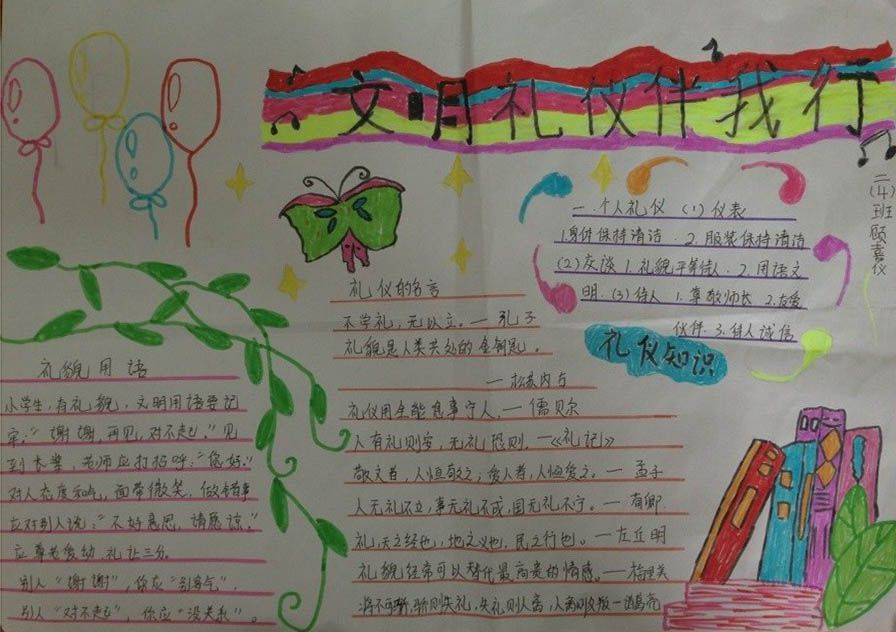 文明礼仪伴我行
二(4)班顾嘉仪
一.个人礼仪 (1)仪表
1.身体保持清洁.2.服装保持清洁
(2)交谈 1.礼貌平等待人.2.用语文
明.(3)待人 1.尊敬师长 2.友爱
伙伴.3.待人诚信
礼仪知识
礼仪的名言
不学礼,无以立。— 孔子
礼貌是人类共处的金钥匙。
— 松苏内吉
礼仪周全能息事宁人.— 儒贝尔
人有礼则安,无礼恐则.—《礼记》
敬文者,人恒敬之;爱人者,人恒爱之。— 孟子
人无礼不立,事无礼不成,国无礼不宁。— 荀卿
礼,天之经也,地之义也,民之行也。— 左丘明
礼貌经常可以替代最高贵的情感。— 梅里美
将不可骄,骄则失礼,失礼则人离,人离则众叛—诸葛亮
礼貌用语
小学生,有礼貌,文明用语要记
牢:"谢谢,再见,对不起。"见
到长辈,老师应打招呼:"您好。"
对人态度和气,面带微笑,做错事
应对别人说:"不好意思,请原谅。"
应尊老爱幼 礼让三分。
别人"谢谢",你应"别客气",
别人"对不起",你应"没关系"。